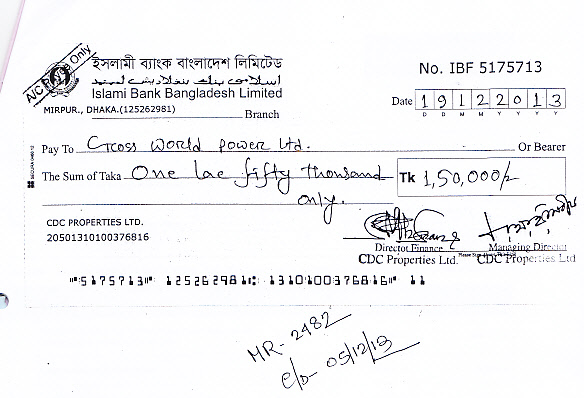 A/C Payee Only
ইসলামী ব্যাংক বাংলাদেশ লিমিটেড
اسلامى بنك بنغلاديش لميتد
Islami Bank Bangladesh Limited
MIRPUR., DHAKA.(125262981)
Branch
No. IBF 5175713
Date 19122013
D D M M Y Y Y Y
Pay To Cross World Power Ltd. Or Bearer
The Sum of Taka One lac fifty thousand
only.
Tk 1,50,000/-
CDC PROPERTIES LTD.
20501310100376816
Director Finance
CDC Properties Ltd.
Managing Director
CDC Properties Ltd
⑈5175713⑈ 125262981⑆ 1310100376816⑈ 11
MR- 2482
05/12/13